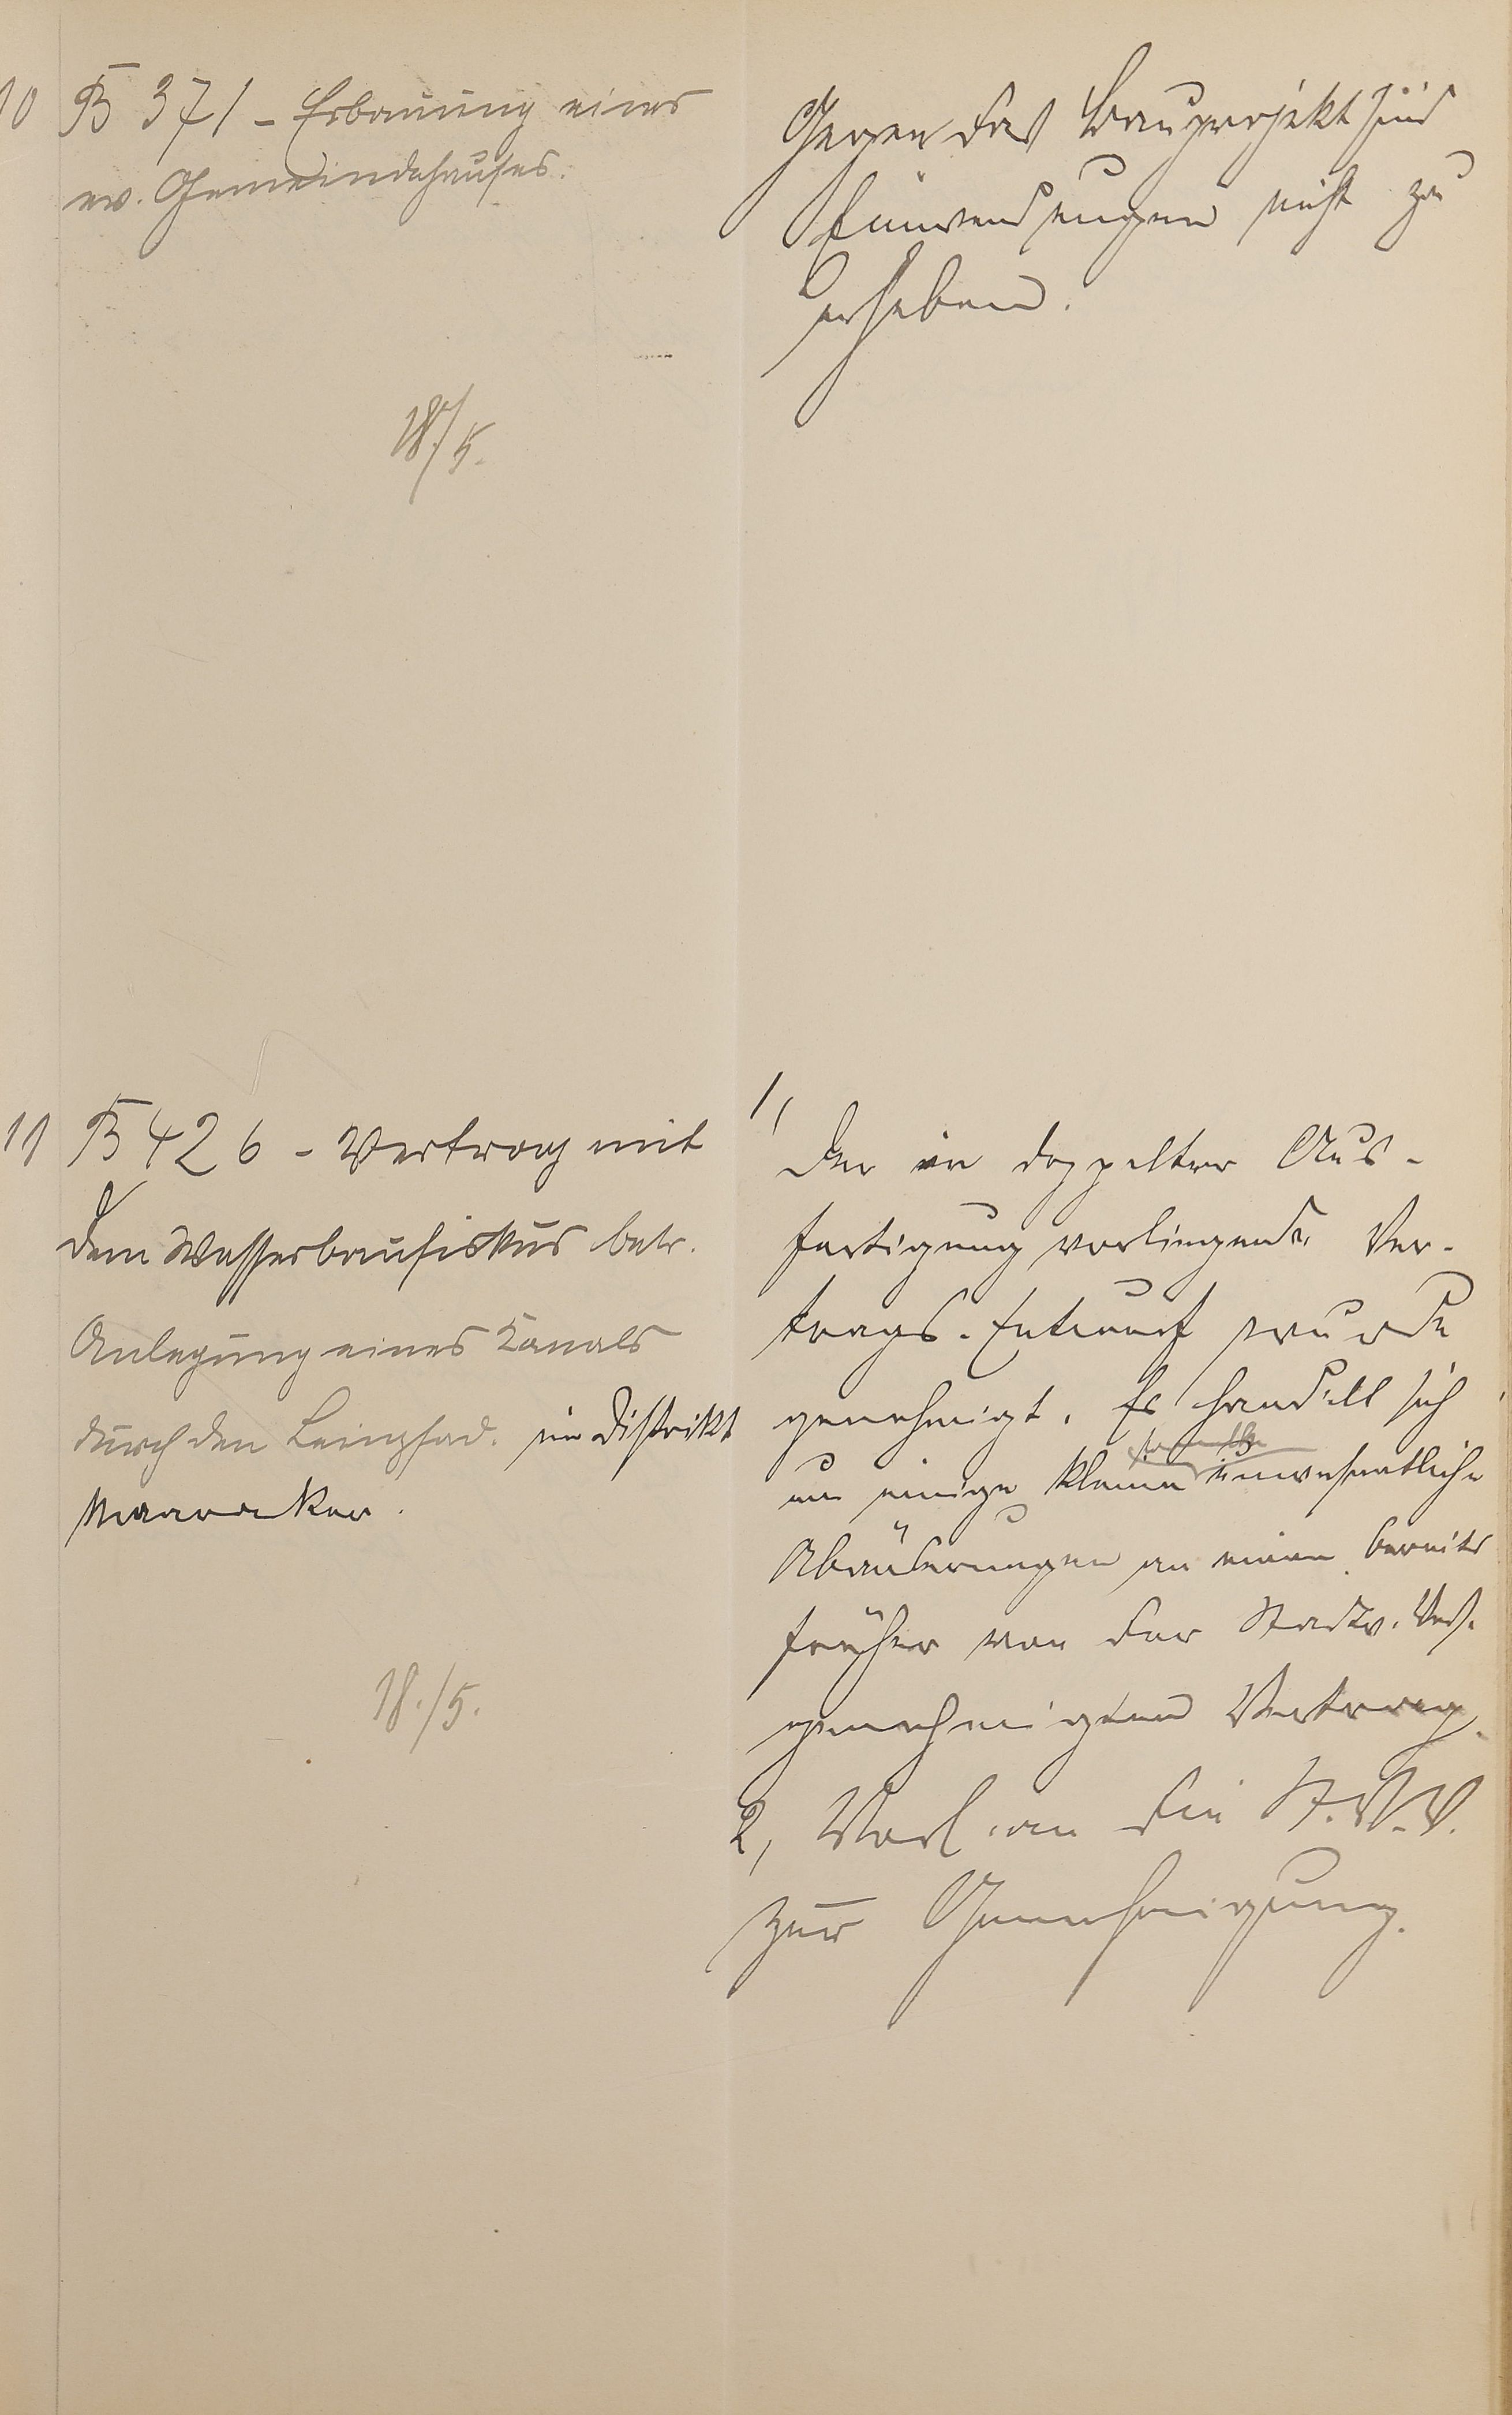 10 B 371 - Erbauung eines
ev. Gemeindehauses.
Gegen das Bauprojekt sind
Einwendungen nicht zu
erheben.
18./5.
11 B 426 - Vertrag mit
dem Wasserbaufiskus betr.
Anlegung eines Kanals
durch den Leinpfad. im Distrikt
Maaracker.
18./5.
1,
Der in doppelter Aus-
fertigung vorliegende Ver-
trags-Entwurf wurde
genehmigt. Es handelt sich
um einige kleine unwesentliche
Abänderungen an einem bereits
früher von der Stadtv. Vers.
genehmigten Vertrag.
2, Vorl. an die St. V. V.
zur Genehmigung.